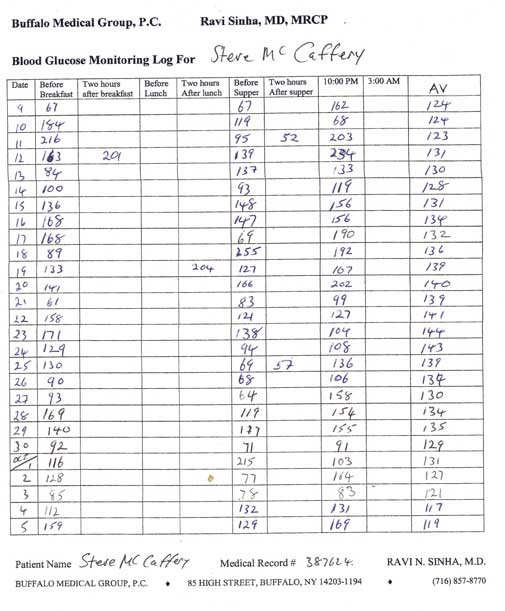 Buffalo Medical Group, P.C. Ravi Sinha, MD, MRCP
Blood Glucose Monitoring Log For Steve McCaffery
Date Before Breakfast Two hours after breakfast Before Lunch Two hours After lunch Before Supper Two hours After supper 10:00 PM 3:00 AM AV
9 67 67 162 124
10 184 119 68 124
11 216 95 52 203 123
12 163 201 139 234 131
13 84 137 133 130
14 100 93 119 128
15 136 148 156 131
16 168 147 156 134
17 168 69 190 132
18 89 255 192 136
19 133 204 127 167 139
20 141 166 202 140
21 61 83 99 139
22 158 121 127 141
23 171 138 104 144
24 129 94 108 143
25 130 69 57 136 139
26 90 68 106 134
27 93 64 158 130
28 169 119 154 134
29 140 155 135
30 92 71 91 129
1 116 215 103 131
2 128 77 164 127
3 85 78 83 121
4 112 132 131 117
5 159 129 169 119
Patient Name Steve McCaffery Medical Record # 387624. RAVI N. SINHA, M.D.
BUFFALO MEDICAL GROUP, P.C. ♦ 85 HIGH STREET, BUFFALO, NY 14203-1194 ♦ (716) 857-8770